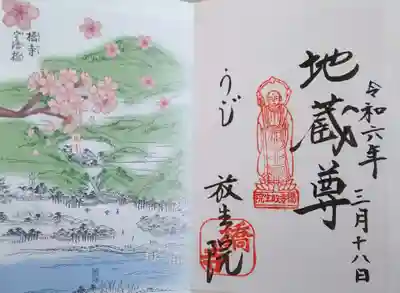 橋寺
宇治橋
令和六年
三月十八日
地蔵尊
橋寺放生院
うじ
放生院
橋寺